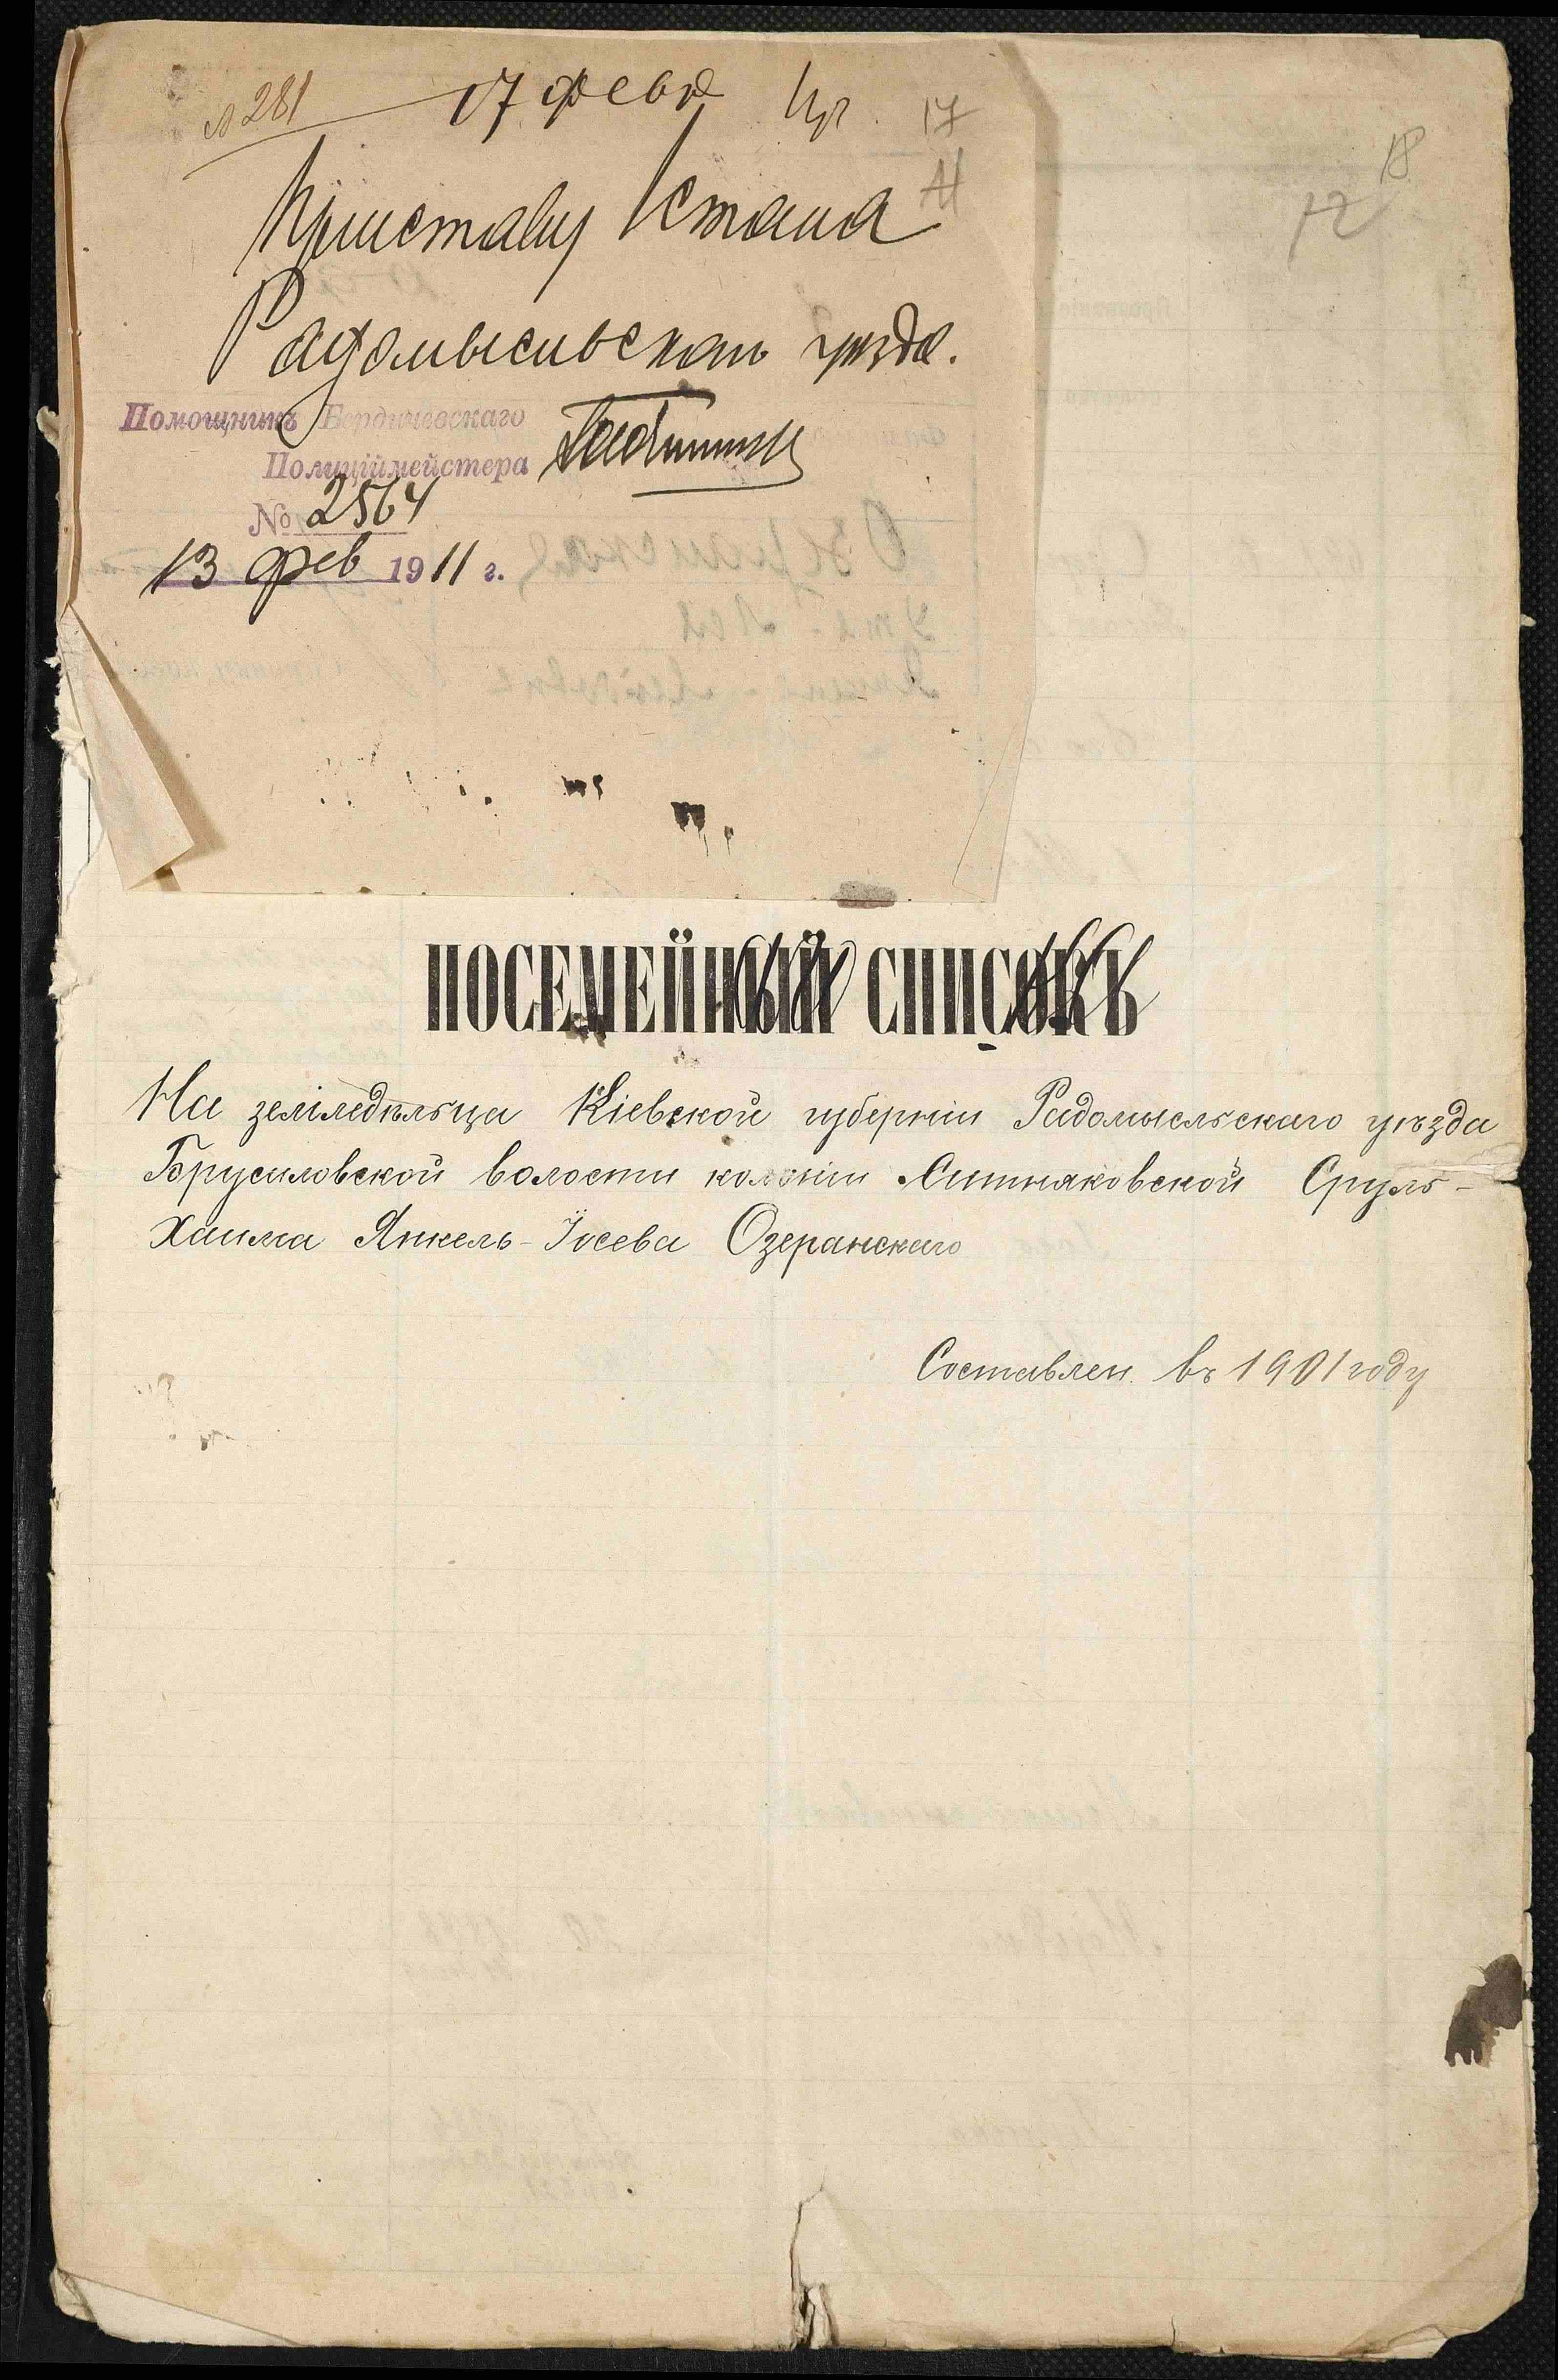 № 281 17 фев
17
18
12
Приставу 1 стана
Радомысльскаго уезда.
Помощникъ Бердичевскаго
Полиціймейстера
№ 2564
13 фев 1911 г.
ПОСЕМЕЙНЫЙ СПИСОКЪ
На земледѣльца Кіевской губерніи Радомысльскаго уѣзда
Брусиловской волости колоніи Ситняковской Сруль-
Хаима Янкель-Іосева Озеранскаго
Составлен въ 1901 году